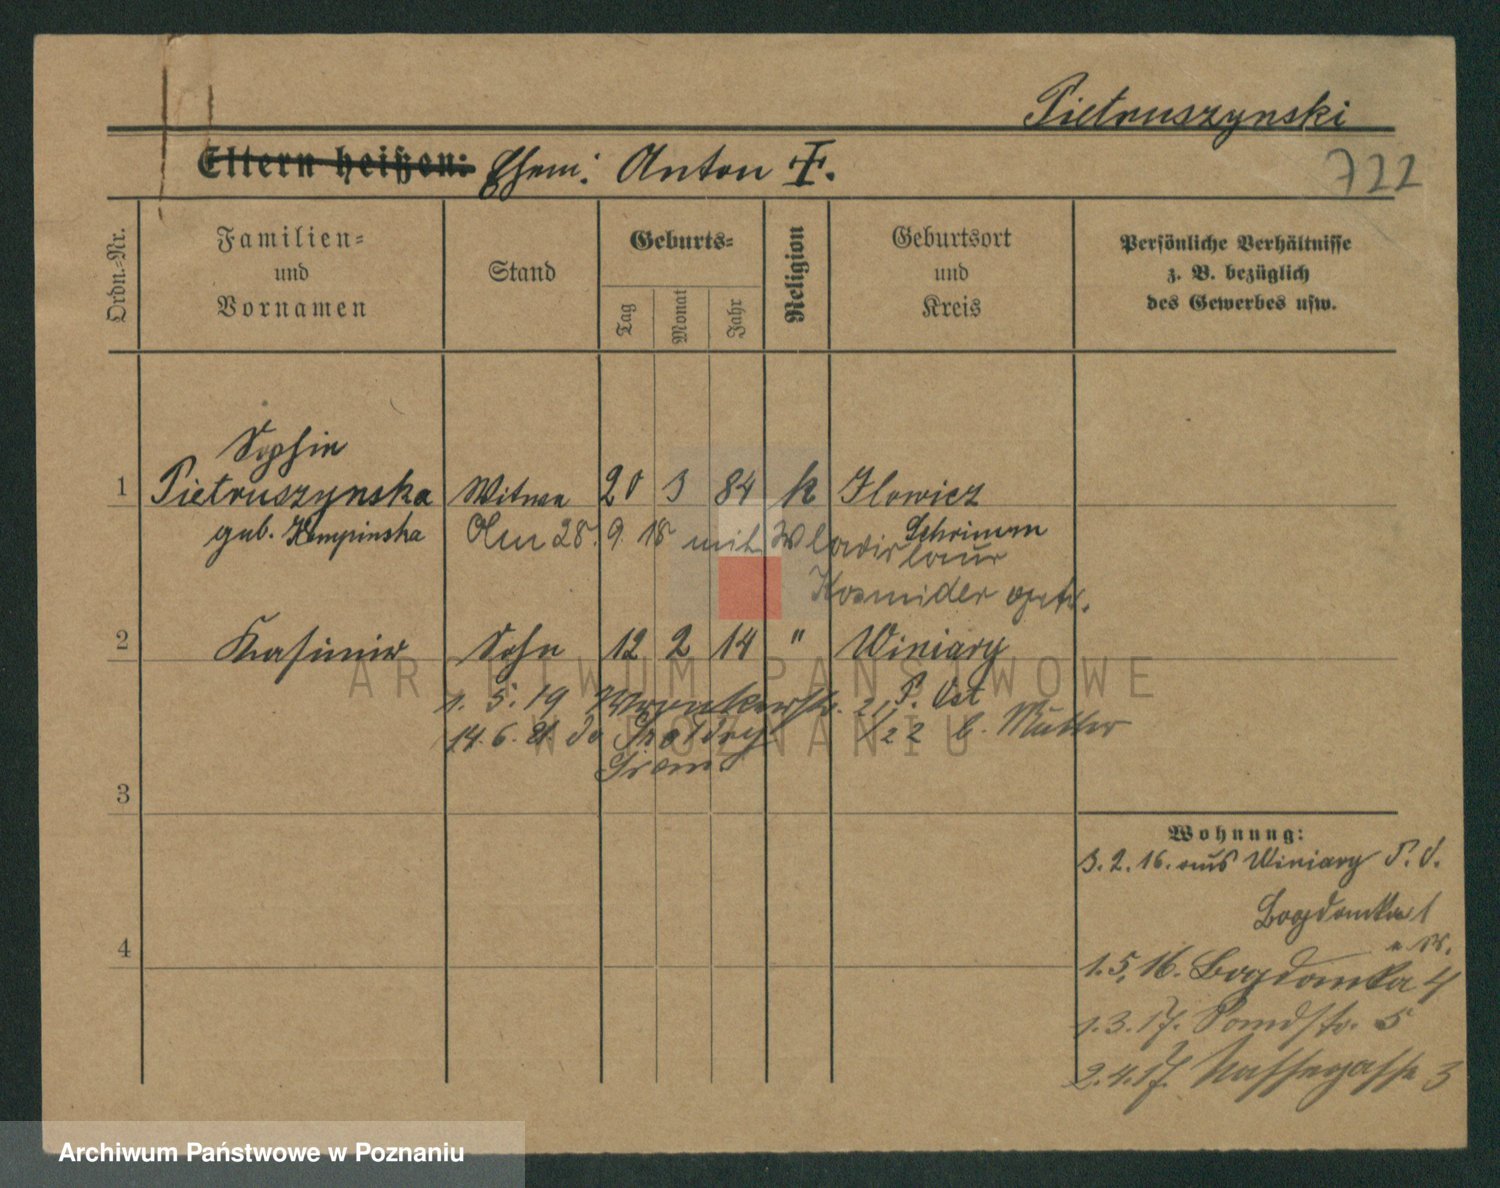 Pietruszynski
Eltern heißen: Ehem: Anton †.
722
Ordn.-Nr.
Familien-
und
Vornamen
Stand
Geburts-
Tag
Monat
Jahr
Religion
Geburtsort
und
Kreis
Persönliche Verhältnisse
z. B. bezüglich
des Gewerbes usw.
Sophie
1 Pietruszynska Witwe 20 3 84 k Ilowiec
geb. Kempinska
Schrimm
28. 9. 18 mit Wladislaus
Kosmider
2 Kasimir Sohn 12 2 14 " Winiary
P. Ost
1. 5. 19
14. 6. 21.
22 b. Mutter
3
4
Wohnung:
3. 2. 16. aus Winiary P. O.
Bogdanka 1
1. 5. 16. Bogdanka 4
1. 3. 17. Sandstr. 5
2. 4. 17. Nassegasse 3
ARCHIWUM PAŃSTWOWE
W POZNANIU
Archiwum Państwowe w Poznaniu